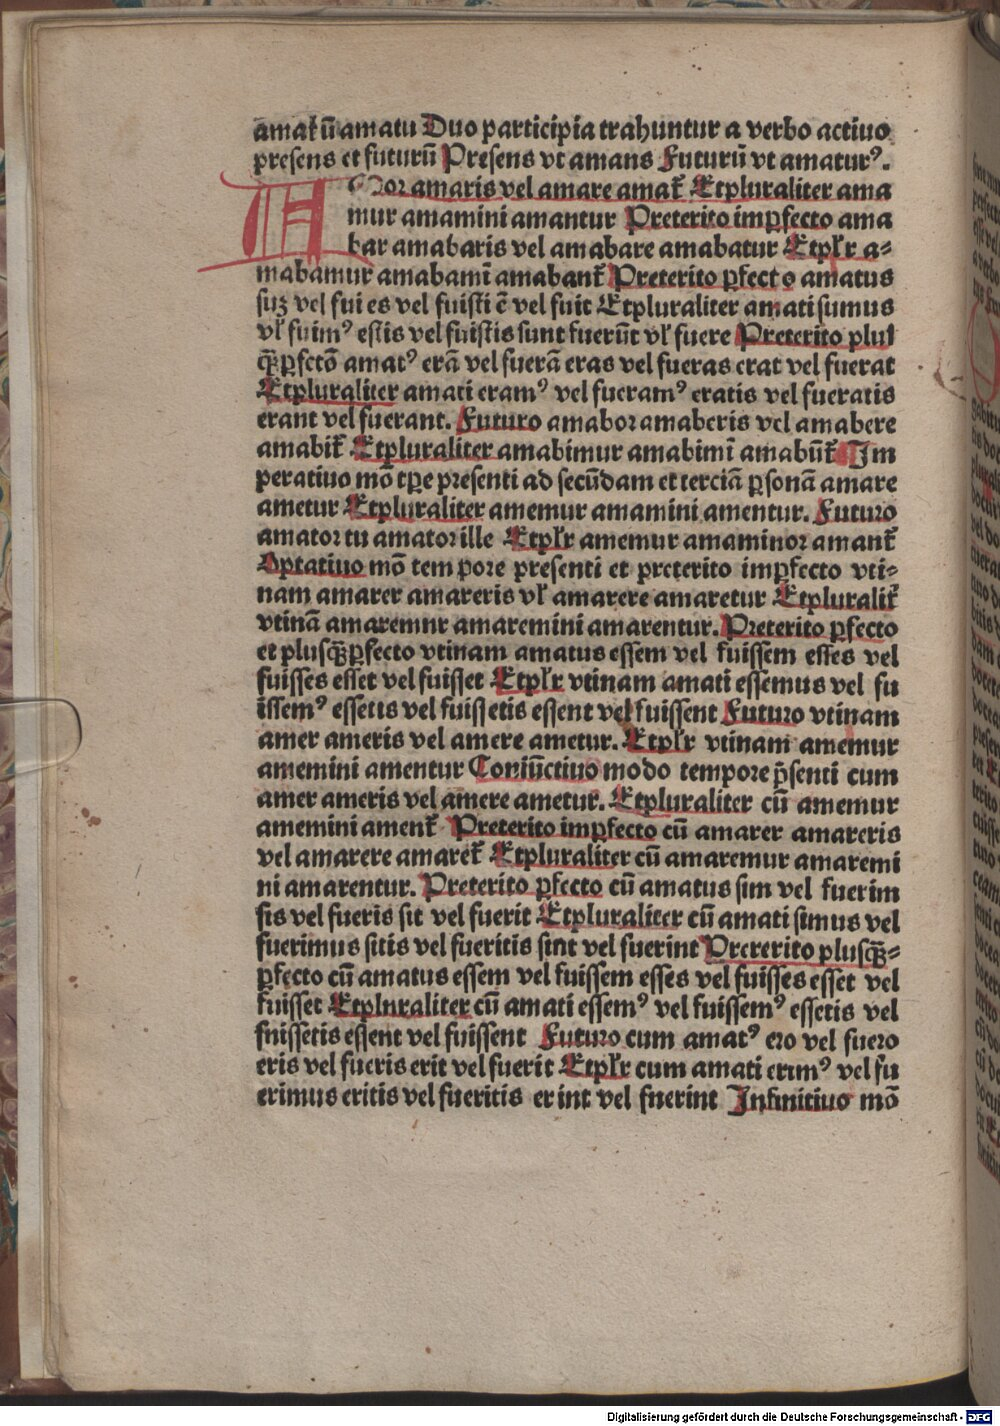 amat᷑ ū amatu Duo participia trahuntur a verbo actiuo
presens et futurū Presens vt amans Futurū vt amaturꝰ.
A Mor amaris vel amare amat᷑ Etpluraliter ama
mur amamini amantur Preterito imꝑfecto ama
bar amabaris vel amabare amabatur Etplr̄ a⸗
mabamur amabamī amabant᷑ Preterito ꝑfecto amatus
suꝫ vel fui es vel fuisti ē vel fuit Etpluraliter amati sumus
vl̓ fuimꝰ estis vel fuistis sunt fuerūt vl̓ fuere Preterito plus
qꝫ̄ꝑfctō amatꝰ erā vel fuerā eras vel fueras erat vel fuerat
Etpluraliter amati eramꝰ vel fueramꝰ eratis vel fueratis
erant vel fuerant. Futuro amabor amaberis vel amabere
amabit᷑ Etpluraliter amabimur amabimī amabūt᷑ Im
peratiuo mō tꝑe presenti ad secūdam et terciā ꝑsonā amare
ametur Etpluraliter amemur amamini amentur. Futuro
amator tu amator ille Etplr̄ amemur amaminor amant᷑
Optatiuo mō tempore presenti et preterito imꝑfecto vti⸗
nam amarer amareris vl̓ amarere amaretur Etpluralit᷑
vtinā amaremnr amaremini amarentur. Preterito ꝑfecto
et plusqꝫ̄ꝑfecto vtinam amatus essem vel fuissem esses vel
fuisses esset vel fuisset Etplr̄ vtinam amati essemus vel fu
issemꝰ essetis vel fuissetis essent vel fuissent Futuro vtinam
amer ameris vel amere ametur. Etplr̄ vtinam amemur
amemini amentur Coniūctiuo modo tempore p̄senti cum
amer ameris vel amere ametur. Etpluraliter cū amemur
amemini ament᷑ Preterito imꝑfecto cū amarer amareris
vel amarere amaret᷑ Etpluraliter cū amaremur amaremi
ni amarentur. Preterito ꝑfecto cū amatus sim vel fuerim
sis vel fueris sit vel fuerit Etpluraliter cū amati simus vel
fuerimus sitis vel fueritis sint vel fuerint Prererito plusqꝫ̄⸗
ꝑfecto cū amatus essem vel fuissem esses vel fuisses esset vel
fuisset Etplnraliter cū amati essemꝰ vel fuissemꝰ essetis vel
fnissetis essent vel fuissent Futuro cum amatꝰ ero vel fuero
eris vel fueris erit vel fuerit Etplr̄ cum amati erimꝰ vel fu
erimus eritis vel fueritis erint vel fnerint Infinitiuo mō
Digitalisierung gefördert durch die Deutsche Forschungsgemeinschaft - DFG